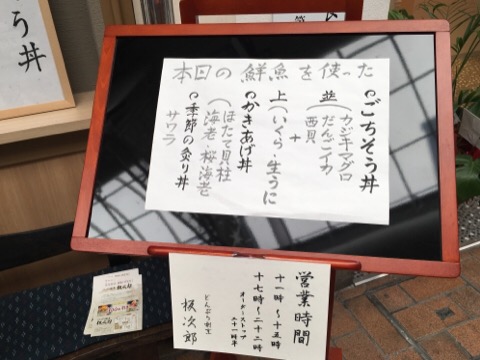 本日の鮮魚を使った
ごちそう丼
並(カジキマグロ
だんごイカ
西貝
+
上(いくら・生うに
かきあげ丼
(ほたて貝柱
海老・桜海老
季節の炙り丼
サワラ
う丼
営業時間
十一時〜十五時
十七時〜二十二時
オーダーストップ
二十一時半
どんぶり割烹
板次郎